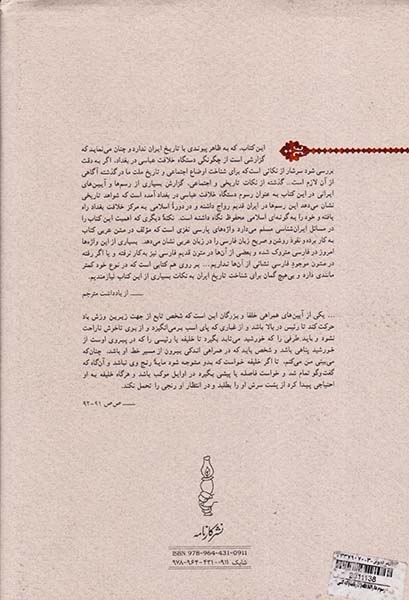 این کتاب، که به ظاهر پیوندی با تاریخ ایران ندارد و چنان می‌نماید که
گزارشی است از چگونگی دستگاه خلافت عباسی در بغداد، اگر به دقت
بررسی شود سرشار از نکاتی است که برای شناخت اوضاع اجتماعی و تاریخ ملت ما در گذشته آگاهی
از آن لازم است... گذشته از نکات تاریخی و اجتماعی، گزارش بسیاری از رسم‌ها و آیین‌های
ایرانی در این کتاب به عنوان رسوم دستگاه خلافت عباسی در بغداد آمده است که شواهد تاریخی
نشان می‌دهد این رسم‌ها در ایران قدیم رواج داشته و در دورهٔ اسلامی به مرکز خلافت بغداد راه
یافته و خود را به گونه‌ای اسلامی محفوظ نگاه داشته است. نکتهٔ دیگری که اهمیت این کتاب را
در مسائل ایران‌شناسی مسلم می‌دارد واژه‌های پارسی نغزی است که مؤلف در متن عربی کتاب
به کار برده و نفوذ روشن و صریح زبان فارسی را در زبان عربی نشان می‌دهد. بسیاری از این واژه‌ها
امروز در فارسی متروک شده و بعضی از آن‌ها در متون قدیم فارسی نیز به کار نرفته و یا اگر رفته
در متون موجود فارسی نشانی از آن‌ها نداریم... بر روی هم کتابی است که در نوع خود کمتر
مانندی دارد و بی‌هیچ گمان برای شناخت تاریخ ایران به نکات بسیاری از این کتاب نیازمندیم.
از یادداشت مترجم
... یکی از آیین‌های همراهی خلفا و بزرگان این است که شخص تابع از جهت زیرین وزش باد
حرکت کند تا رئیس در بالا باشد و از غباری که پای اسب برمی‌انگیزد و از بوی ناخوش ناراحت
نشود و باید طرفی را که خورشید می‌تابد بگیرد تا خلیفه یا رئیسی را که در پیروی اوست از
خورشید پناهی باشد و شخص باید که در همراهی اندکی بیرون از مسیر خط او باشد. چنان‌که
می‌بینی من می‌کنم، تا اگر خلیفه خواست که بدو متوجه شود مایهٔ رنج وی نباشد و آن‌گاه که
گفت‌وگو تمام شد و خواست فاصله یا پیشی بگیرد در اوایل موکب باشد و هرگاه خلیفه به او
احتیاجی پیدا کرد از پشت سرش او را بطلبد و در انتظار او رنجی را تحمل نکند.
صص ۹۱-۹۲
نشر کارنامه
ISBN 978-964-431-0911
شابک ۰۹۱۱-۴۳۱-۹۶۴-۹۷۸
2011138